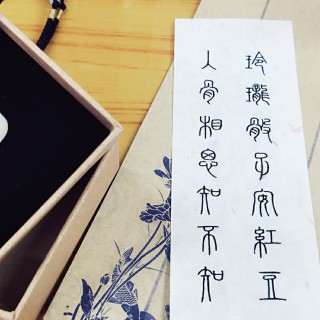 玲瓏骰子安紅豆
人骨相思知不知